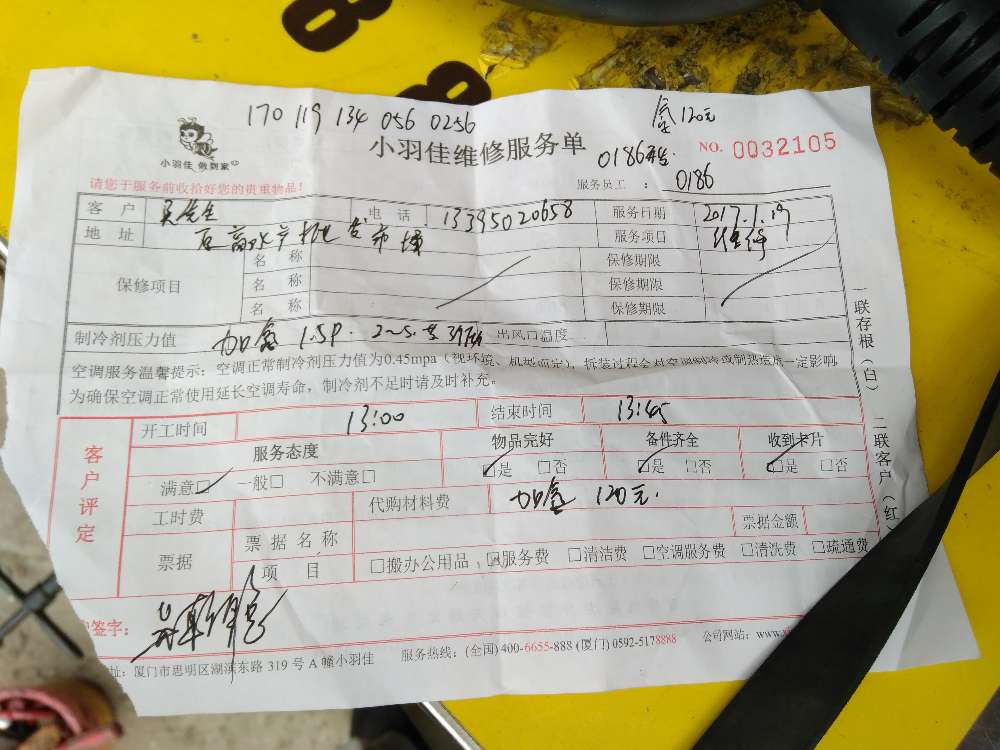 170 119 134 056 0256
120元
小羽佳 做到家
小羽佳维修服务单
NO. 0032105
0186
请您于服务前收拾好您的贵重物品!
服务员工 : 0186
客 户 吴先生 电 话 13395020658 服务日期 2017.1.19
地 址 市场 服务项目
保修项目 名 称 保修期限
名 称 保修期限
名 称 保修期限
制冷剂压力值 1.5P. 出风口温度
空调服务温馨提示: 空调正常制冷剂压力值为0.45mpa (视环境、机型而定), 拆装过程会对空调制冷或制热造成一定影响
为确保空调正常使用延长空调寿命,制冷剂不足时请及时补充。
客户评定
开工时间 13:00 结束时间 13:45
服务态度 物品完好 备件齐全 收到卡片
满意□ 一般□ 不满意□ □是 □否 □是 □否 □是 □否
工时费 代购材料费 120元.
票据 票据名称 票据金额
项 目 □搬办公用品 □服务费 □清洁费 □空调服务费 □清洗费 □疏通费
签字:
址: 厦门市思明区湖滨东路 319 号 A 幢小羽佳 服务热线: (全国) 400-6655-888 (厦门) 0592-5178888 公司网站: www.
一联存根(白) 二联客户(红)